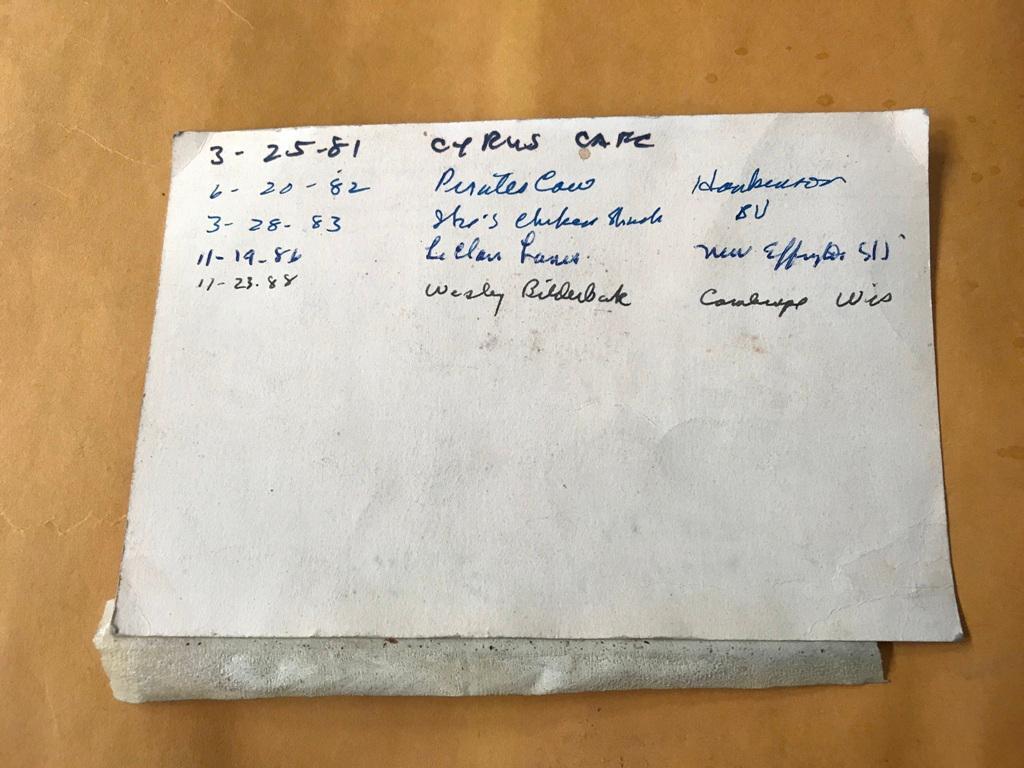 3-25-81 CYRUS CAFE
6-20-82 Pirates Cove Hankinson
3-28-83 Ike's Chicken Shack BV
11-19-86 LeClair Lanes New Effington SD
11-23-88 Wesley Bilderback Wis